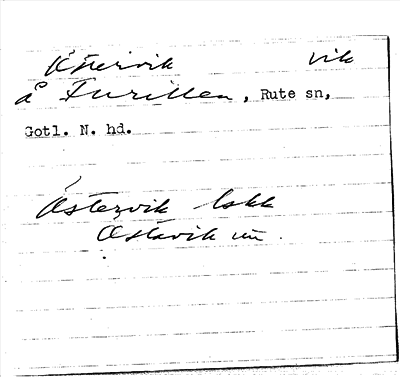 Östervik vik
å Furillen, Rute sn,
Gotl. N. hd.
Östervik lokk
Östavik un.